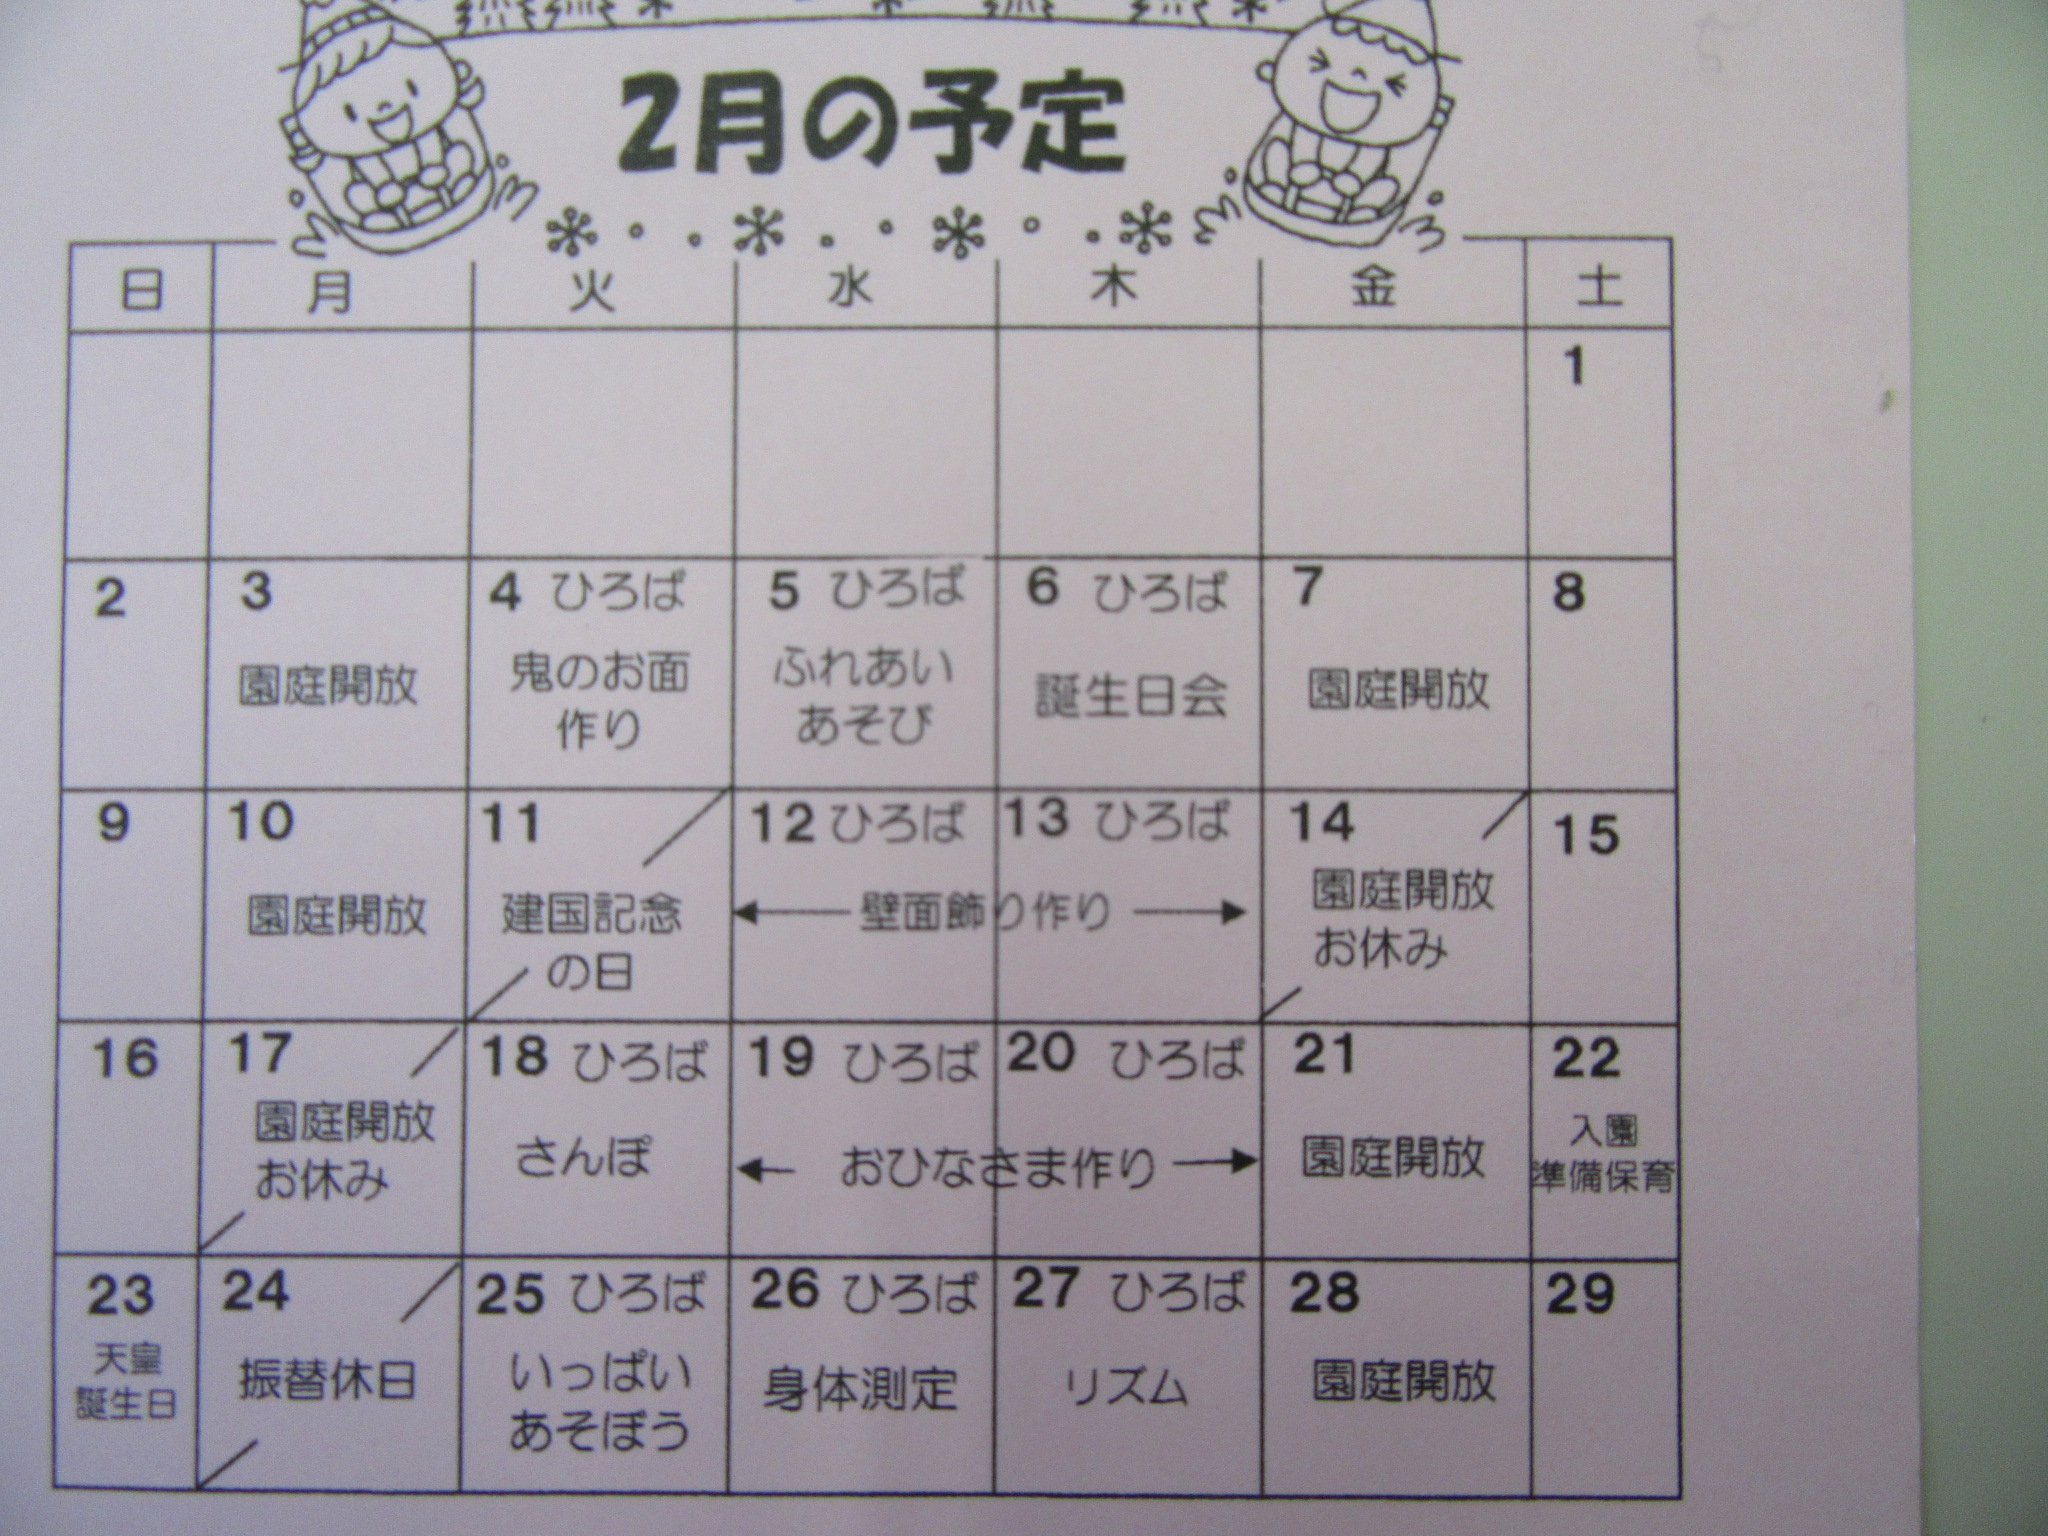 2月の予定
日 月 火 水 木 金 土
1
2
3
園庭開放
4 ひろば
鬼のお面
作り
5 ひろば
ふれあい
あそび
6 ひろば
誕生日会
7
園庭開放
8
9
10
園庭開放
11
建国記念
の日
12 ひろば
13 ひろば
壁面飾り作り
14
園庭開放
お休み
15
16
17
園庭開放
お休み
18 ひろば
さんぽ
19 ひろば
20 ひろば
おひなさま作り
21
園庭開放
22
入園
準備保育
23
天皇
誕生日
24
振替休日
25 ひろば
いっぱい
あそぼう
26 ひろば
身体測定
27 ひろば
リズム
28
園庭開放
29